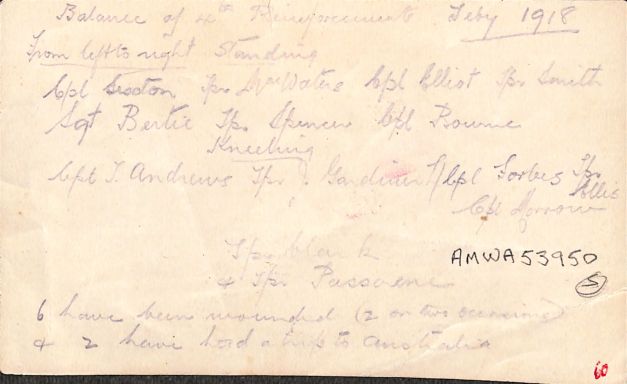 Balance of 4th Reinforcements Feby 1918
From left to right Standing
Cpl Sexton Tpr MacWaters Cpl Elliot Tpr Smith
Sgt Bertie Tpr Spencer Cpl Bourne
Kneeling
Cpl T. Andrews Tpr Gardiner L/Cpl Forbes Tpr Ellis
Cpl Morrow
Tpr Clark
& Tpr
AMWA53950
5
6 have been wounded (2 on two occasions)
& 2 have had a trip to Australia
60